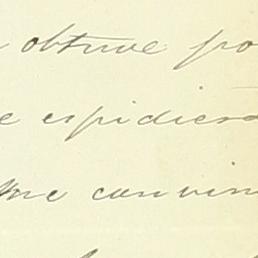 obtuve po
e espidiesa
me convin